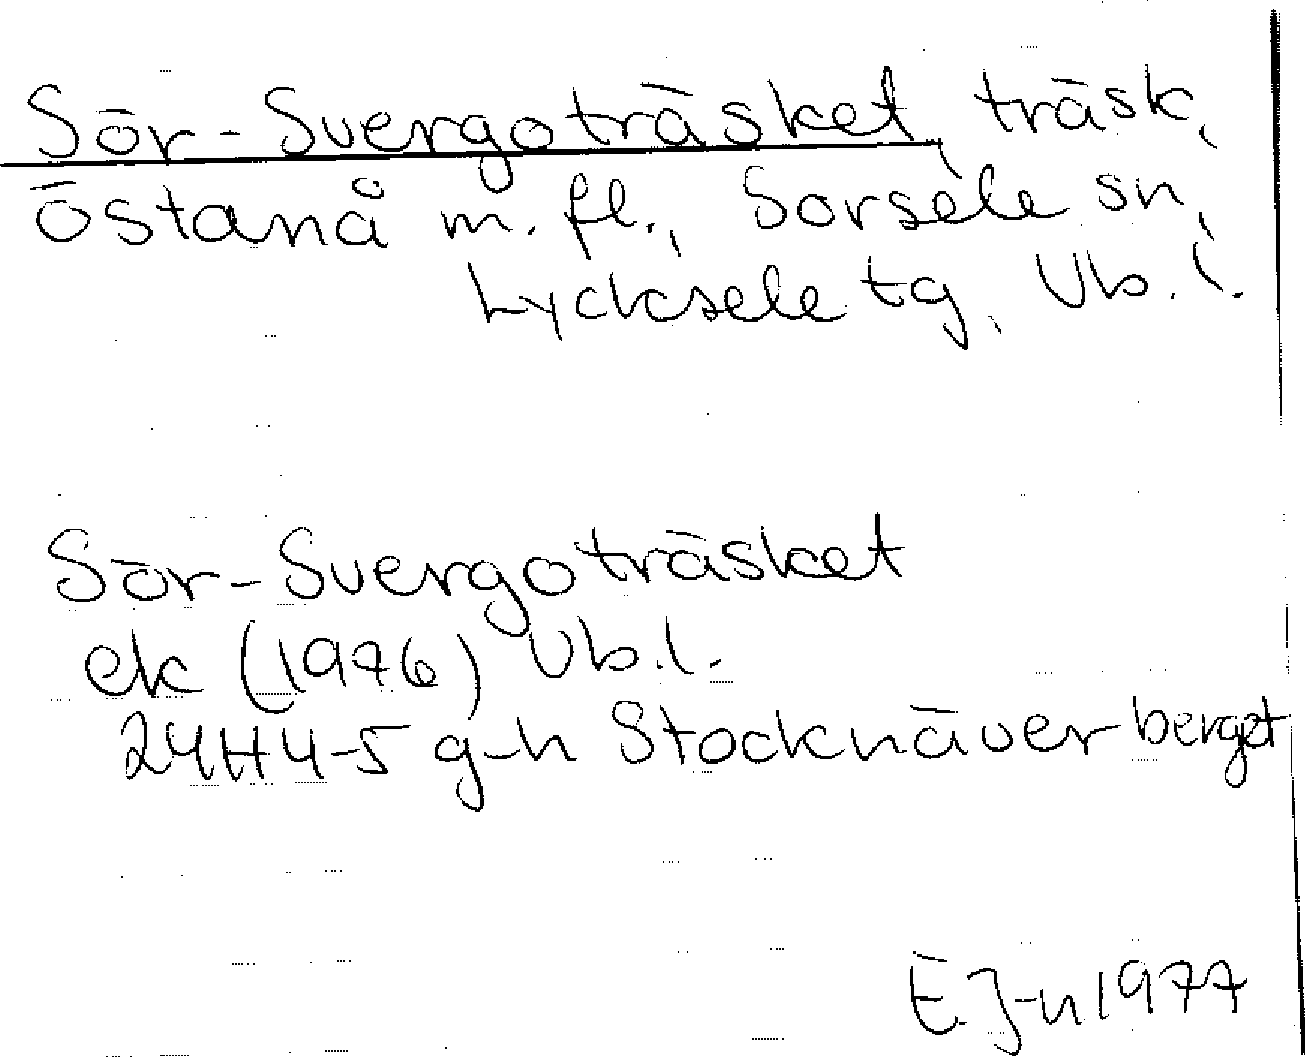 Sör-Svergoträsket, träsk,
Östanå m. fl., Sorsele sn,
Lycksele tg, Vb. l.
Sör-Svergoträsket
ek (1976) Vb.l.
24H4-5 g-h Stocknäverberget
E. J-n 1977